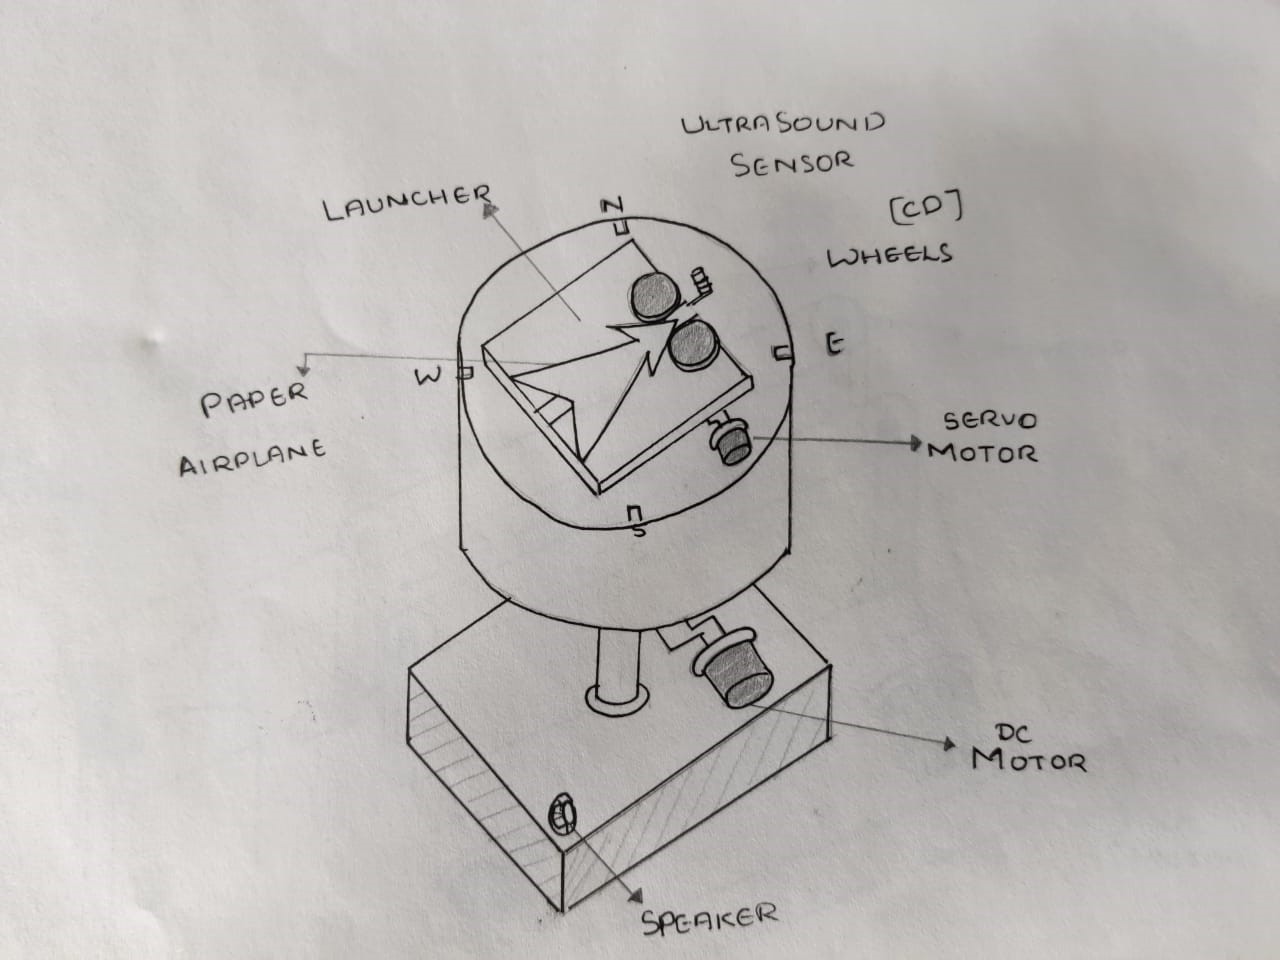 ULTRASOUND
SENSOR
LAUNCHER
N
[CD]
WHEELS
E
W
PAPER
AIRPLANE
SERVO
MOTOR
S
DC
MOTOR
SPEAKER